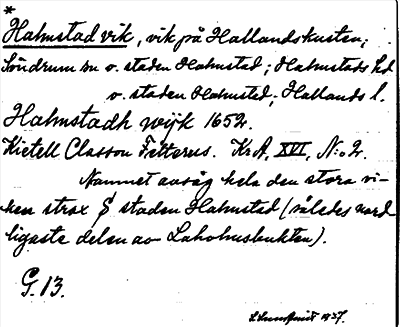 *
Halmstad vik, vik på Hallandskusten;
Söndrum sn o. staden Halmstad; Halmstads hd
o. staden Halmstad; Hallands l.
Halmstadh wijk 1652.
Kietell Classon Felterus. KrA, XVI, N:o 2.
Namnet avsåg hela den stora vi-
ken strax S staden Halmstad (således nord-
ligaste delen av Laholmsbukten).
G. 13.
1937.